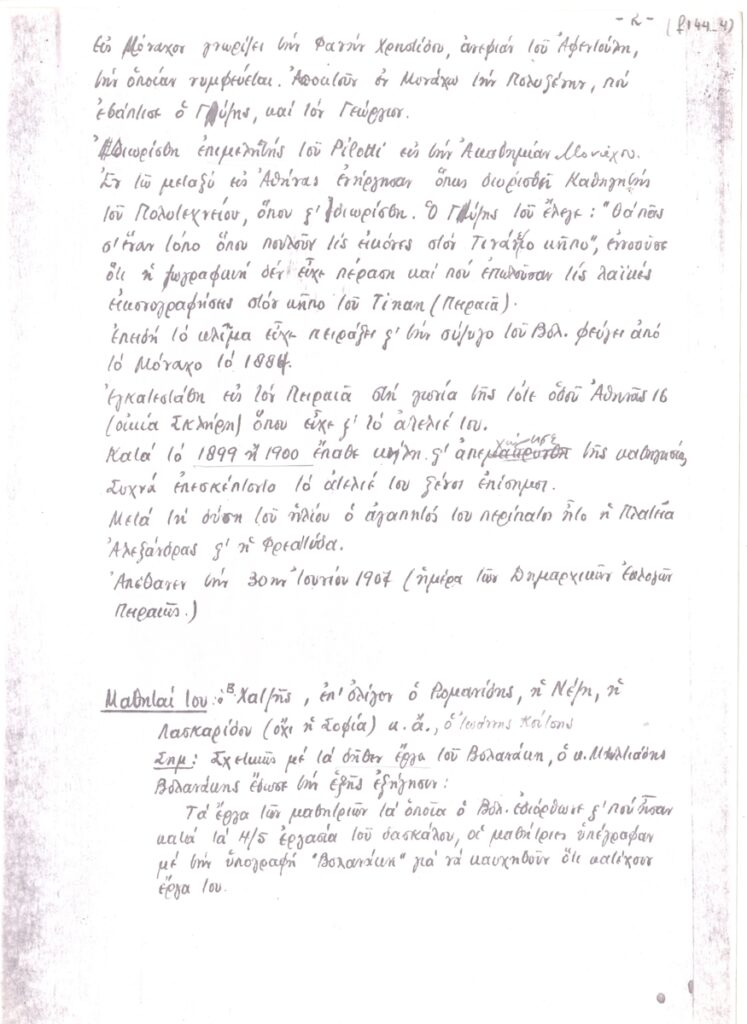 - 2 - (f144_4)
εις Μόναχον γνωρίζει την Φανήν Χρηστίδου, ἀνεψιάν τοῦ Ἀφεντούλη,
τήν ὁποίαν νυμφεύεται. Ἀποκτοῦν ἐν Μονάχῳ τήν Πολυξένην, πού
ἐβάπτισε ὁ Γύζης, καί τόν Γεώργιον.
Διωρίσθη ἐπιμελητής τοῦ Piloti εἰς τήν Ἀκαδημίαν Μονάχου.
Ἐν τῷ μεταξύ εἰς Ἀθήνας ἐνήργησαν ὅπως διωρισθεῖ Καθηγητής
τοῦ Πολυτεχνείου, ὅπου ϛ' διωρίσθη. Ὁ Γύζης τοῦ ἔλεγε: "Θά πᾶς
σ' ἕναν τόπο ὅπου πουλοῦν τίς εἰκόνες στόν Τινάνειο κῆπο", ἐννοοῦσε
ὅτι ἡ ζωγραφική δέν εἶχε πέραση καί πού ἐπωλοῦσαν τίς λαϊκές
εἰκονογραφήσεις στόν κῆπο τοῦ Τίναν (Πειραιᾶ).
Ἐπειδή τό κλῖμα εἶχε πειράξει ϛ' τήν σύζυγο τοῦ Βολ. φεύγει ἀπό
τό Μόναχο τό 1884.
Ἐγκατεστάθη εἰς τόν Πειραιᾶ στή γωνία τῆς τότε ὁδοῦ Ἀθηνᾶς 16
(οἰκία Σκλήρη) ὅπου εἶχε ϛ' τό ἀτελιέ του.
Κατά τό 1899 ἤ 1900 ἔπαθε κήλη ϛ' ἀπεχώρησε τῆς καθηγεσίας
Συχνά ἐπεσκέπτοντο τό ἀτελιέ του ξένοι ἐπίσημοι.
Μετά τή δύση τοῦ ἡλίου ὁ ἀγαπητός του περίπατος ἦτο ἡ Πλατεῖα
Ἀλεξάνδρας ϛ' ἡ Φρεαττύδα.
Ἀπέθανεν τήν 30ην Ἰουνίου 1907 (ἡμέρα τῶν Δημαρχικῶν ἐκλογῶν
Πειραιῶς.)
Μαθηταί του: ὁ Β. Χατζῆς, ἐπ' ὀλίγον ὁ Ρωμανίδης, ἡ Νέζη, ἡ
Λασκαρίδου (ὄχι ἡ Σοφία) κ.ἄ., ὁ Ἰωάννης Κούτσης
Σημ: Σχετικῶς μέ τά δῆθεν ἔργα τοῦ Βολανάκη, ὁ κ. Μιλτιάδης
Βολανάκης ἔδωσε τήν ἑξῆς ἐξήγησιν:
Τά ἔργα τῶν μαθητριῶν τά ὁποῖα ὁ Βολ. ἐδιόρθωνε ϛ' πού ἦσαν
κατά τά 4/5 ἐργασία τοῦ δασκάλου, οἱ μαθήτριες ὑπέγραφαν
μέ τήν ὑπογραφή "Βολανάκη" γιά νά καυχηθοῦν ὅτι κατέχουν
ἔργα του.